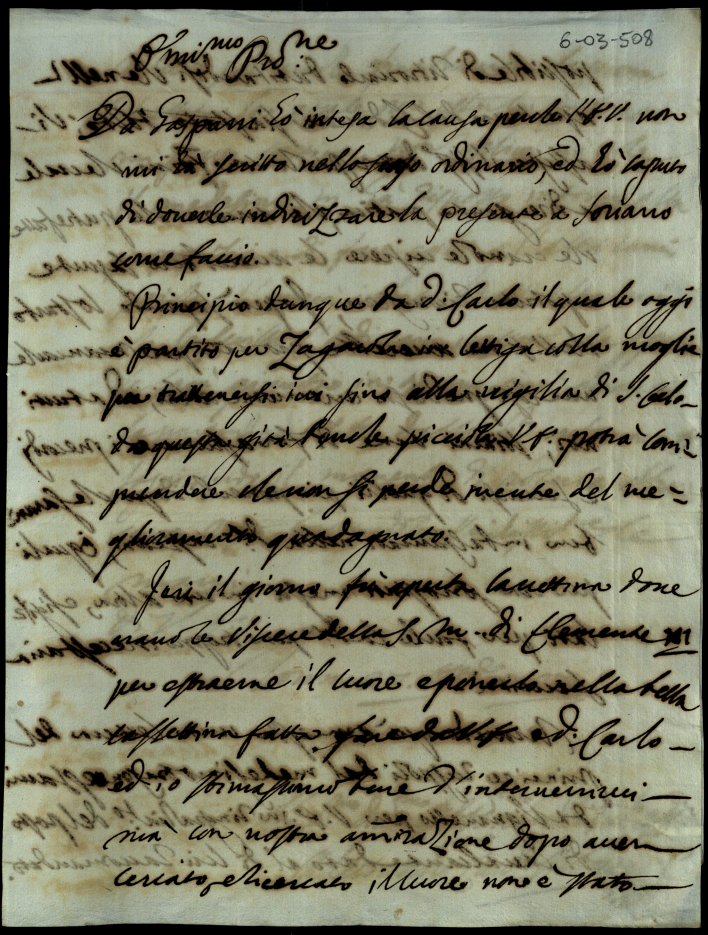 6-03-508
E.mo mio Pro.ne
Da Gaspari hò intesa la causa perche V.E. non
mi hà scritto nello scorso ordinario, ed hò saputo
di doverle indirizzare la presente a Soriano
come faccio.
Principio dunque da d. Carlo il quale oggi
è partito per Zagarolo in lettiga colla moglie
per trattenersi ivi sino alla vigilia di S. Carlo
da questa gita benche piccola V.E. potrà com=
prendere che non si perde niente del me=
glioramento guadagnato.
Jeri il giorno fù aperta la vettina dove
erano le viscere della S. M. di Clemente
per estraerne il cuore e ponerlo nella bella
cassettina fatta fare ed d. Carlo
ed io stimassimo bene d'intervenirvi
mà con nostra amirazione dopo aver
cercato, e ricercato il cuore non è stato